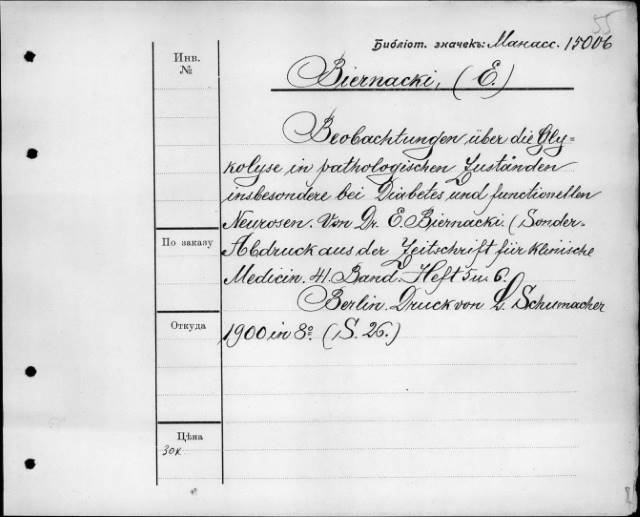 55
Библіот. значекъ: Манасс. 15006
Инв.
№
Biernacki, (E.)
Beobachtungen über die Gly=
kolyse in pathologischen Zuständen
insbesondere bei Diabetes und functionellen
Neurosen. Von Dr. E. Biernacki. (Sonder-
По заказу
Abdruck aus der Zeitschrift für klinische
Medicin. 41. Band. Heft 5 u. 6.
Berlin. Druck von L. Schumacher
Откуда
1900 in 8º. (S. 26.)
Цѣна
30к